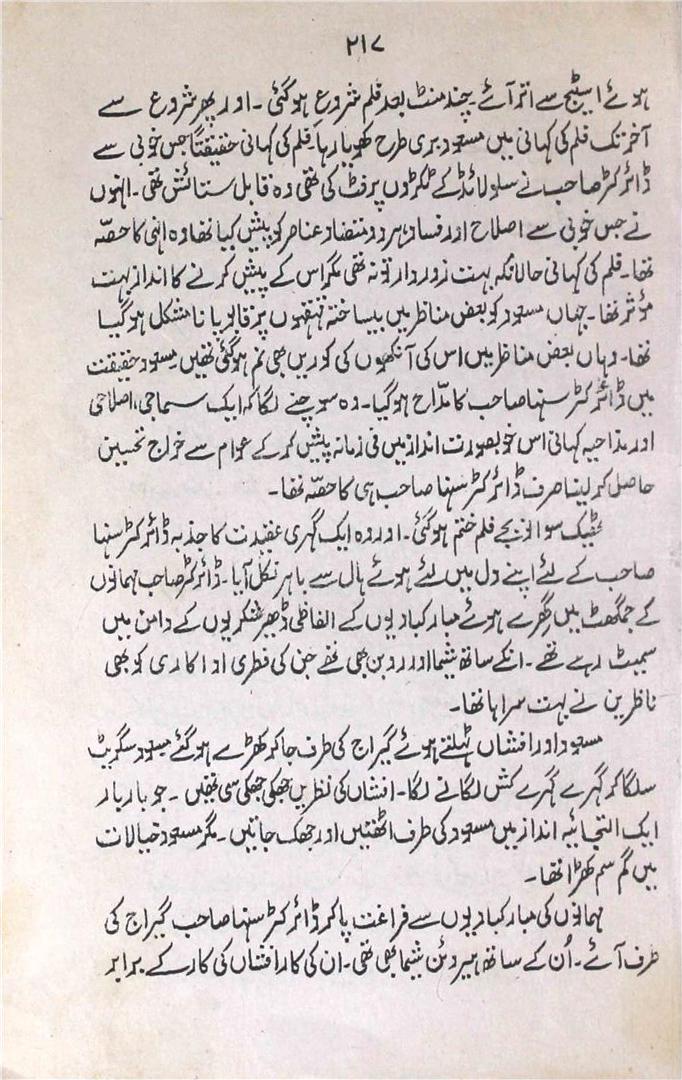 ۲۱۷
ہوئے اسٹیج سے اتر آئے۔ چند منٹ بعد فلم شروع ہو گئی۔ اور پھر شروع سے
آخر تک فلم کی کہانی میں مسعود بری طرح کھویا رہا۔ فلم کی کہانی حقیقتاً جس خوبی سے
ڈائرکٹر صاحب نے سلولائڈ کے ٹکڑوں پر فٹ کی تھی وہ قابل ستائش تھی۔ انہوں
نے جس خوبی سے اصلاح اور فساد، ہر دو متضاد عناصر کو پیش کیا تھا وہ انہی کا حصّہ
تھا۔ فلم کی کہانی حالانکہ بہت زوردار تو نہ تھی مگر اس کے پیش کرنے کا انداز بہت
مؤثر تھا۔ جہاں مسعود کو بعض مناظر میں بیساختہ قہقہوں پر قابو پانا مشکل ہو گیا
تھا۔ وہاں بعض مناظر میں اس کی آنکھوں کی کوریں بھی نم ہو گئی تھیں۔ مسعود حقیقت
میں ڈائرکٹر سنہا صاحب کا مدّاح ہو گیا۔ وہ سوچنے لگا کہ ایک سماجی، اصلاحی
اور مذاحیہ کہانی اس خوبصورت انداز میں فی زمانہ پیش کر کے عوام سے خراج تحسین
حاصل کر لینا صرف ڈائرکٹر سنہا صاحب ہی کا حصّہ تھا۔
ٹھیک سوا نو بجے فلم ختم ہو گئی۔ اور وہ ایک گہری عقیدت کا جذبہ ڈائرکٹر سنہا
صاحب کے لئے اپنے دل میں لئے ہوئے ہال سے باہر نکل آیا۔ ڈائرکٹر صاحب مہمانوں
کے جمگھٹ میں گھرے ہوئے مبارکبادیوں کے الفاظی ڈھیر شکریوں کے دامن میں
سمیٹ رہے تھے۔ انکے ساتھ شیما اور روبن بھی تھے جن کی فطری اداکاری کو بھی
ناظرین نے بہت سراہا تھا۔
مسعود اور افشاں ٹہلتے ہوئے گیراج کی طرف جا کر کھڑے ہو گئے مسعود سگریٹ
سلگا کر گہرے گہرے کش لگانے لگا۔ افشاں کی نظریں جھکی جھکی سی تھیں۔ جو بار بار
ایک التجائیہ انداز میں مسعود کی طرف اٹھتیں اور جھک جاتیں۔ مگر مسعود خیالات
میں گم سم کھڑا تھا۔
مہمانوں کی مبارکبادیوں سے فراغت پا کر ڈائرکٹر سنہا صاحب گیراج کی
طرف آئے۔ اُن کے ساتھ ہیروئن شیما بھی تھی۔ ان کی کار افشاں کی کار کے برابر